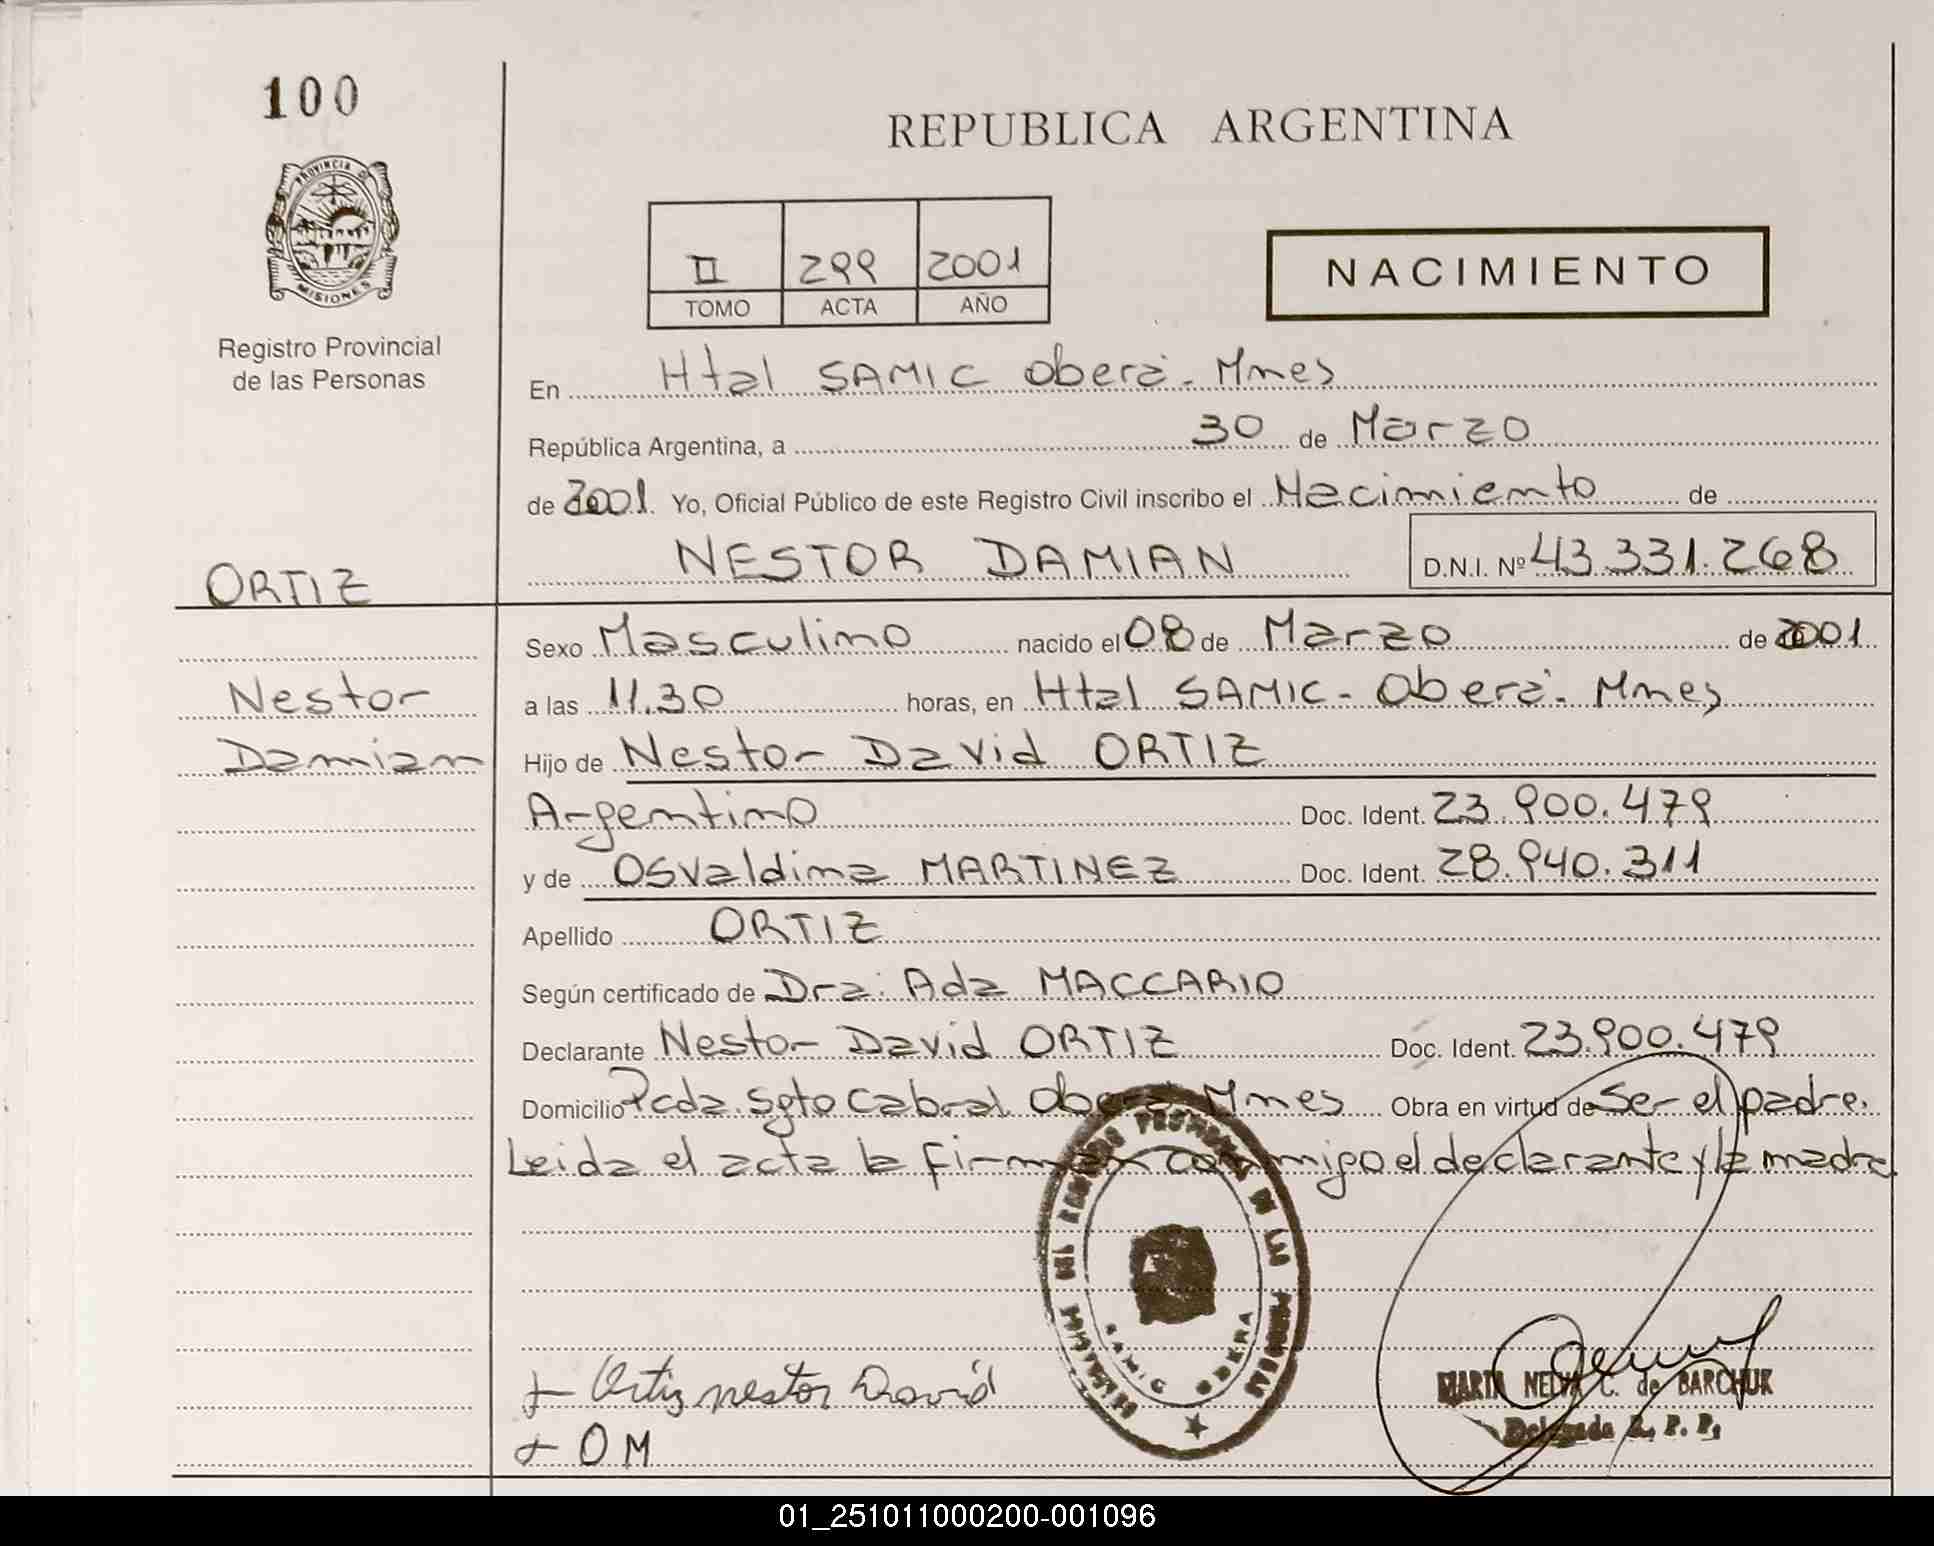 100
REPUBLICA ARGENTINA
PROVINCIA D
MISIONES
Registro Provincial
de las Personas
II 299 2001
TOMO ACTA AÑO
NACIMIENTO
En Htal SAMIC Oberá. Mnes
República Argentina, a 30 de Marzo
de 2001. Yo, Oficial Público de este Registro Civil inscribo el Nacimiento de
NESTOR DAMIAN D.N.I. Nº 43.331.268
ORTIZ
Sexo Masculino nacido el 08 de Marzo de 2001
Nestor
a las 11.30 horas, en Htal SAMIC - Oberá. Mnes
Damian
Hijo de Nestor David ORTIZ
Argentino Doc. Ident. 23.900.479
y de Osvaldina MARTINEZ Doc. Ident. 28.940.311
Apellido ORTIZ
Según certificado de Dra: Ada MACCARIO
Declarante Nestor David ORTIZ Doc. Ident. 23.900.479
Domicilio Pcda. Sgto Cabral Oberá Mnes Obra en virtud de Ser el padre.
Leida el acta la firman conmigo el declarante y la madre
DEL REGISTRO PROVINCIAL DE LAS PERSONAS
SAMIC OBERA
+ Ortiz nestor David
+ OM
MARIA NELVA C. de BARCHUK
Delegada R. P. P.
01_251011000200-001096